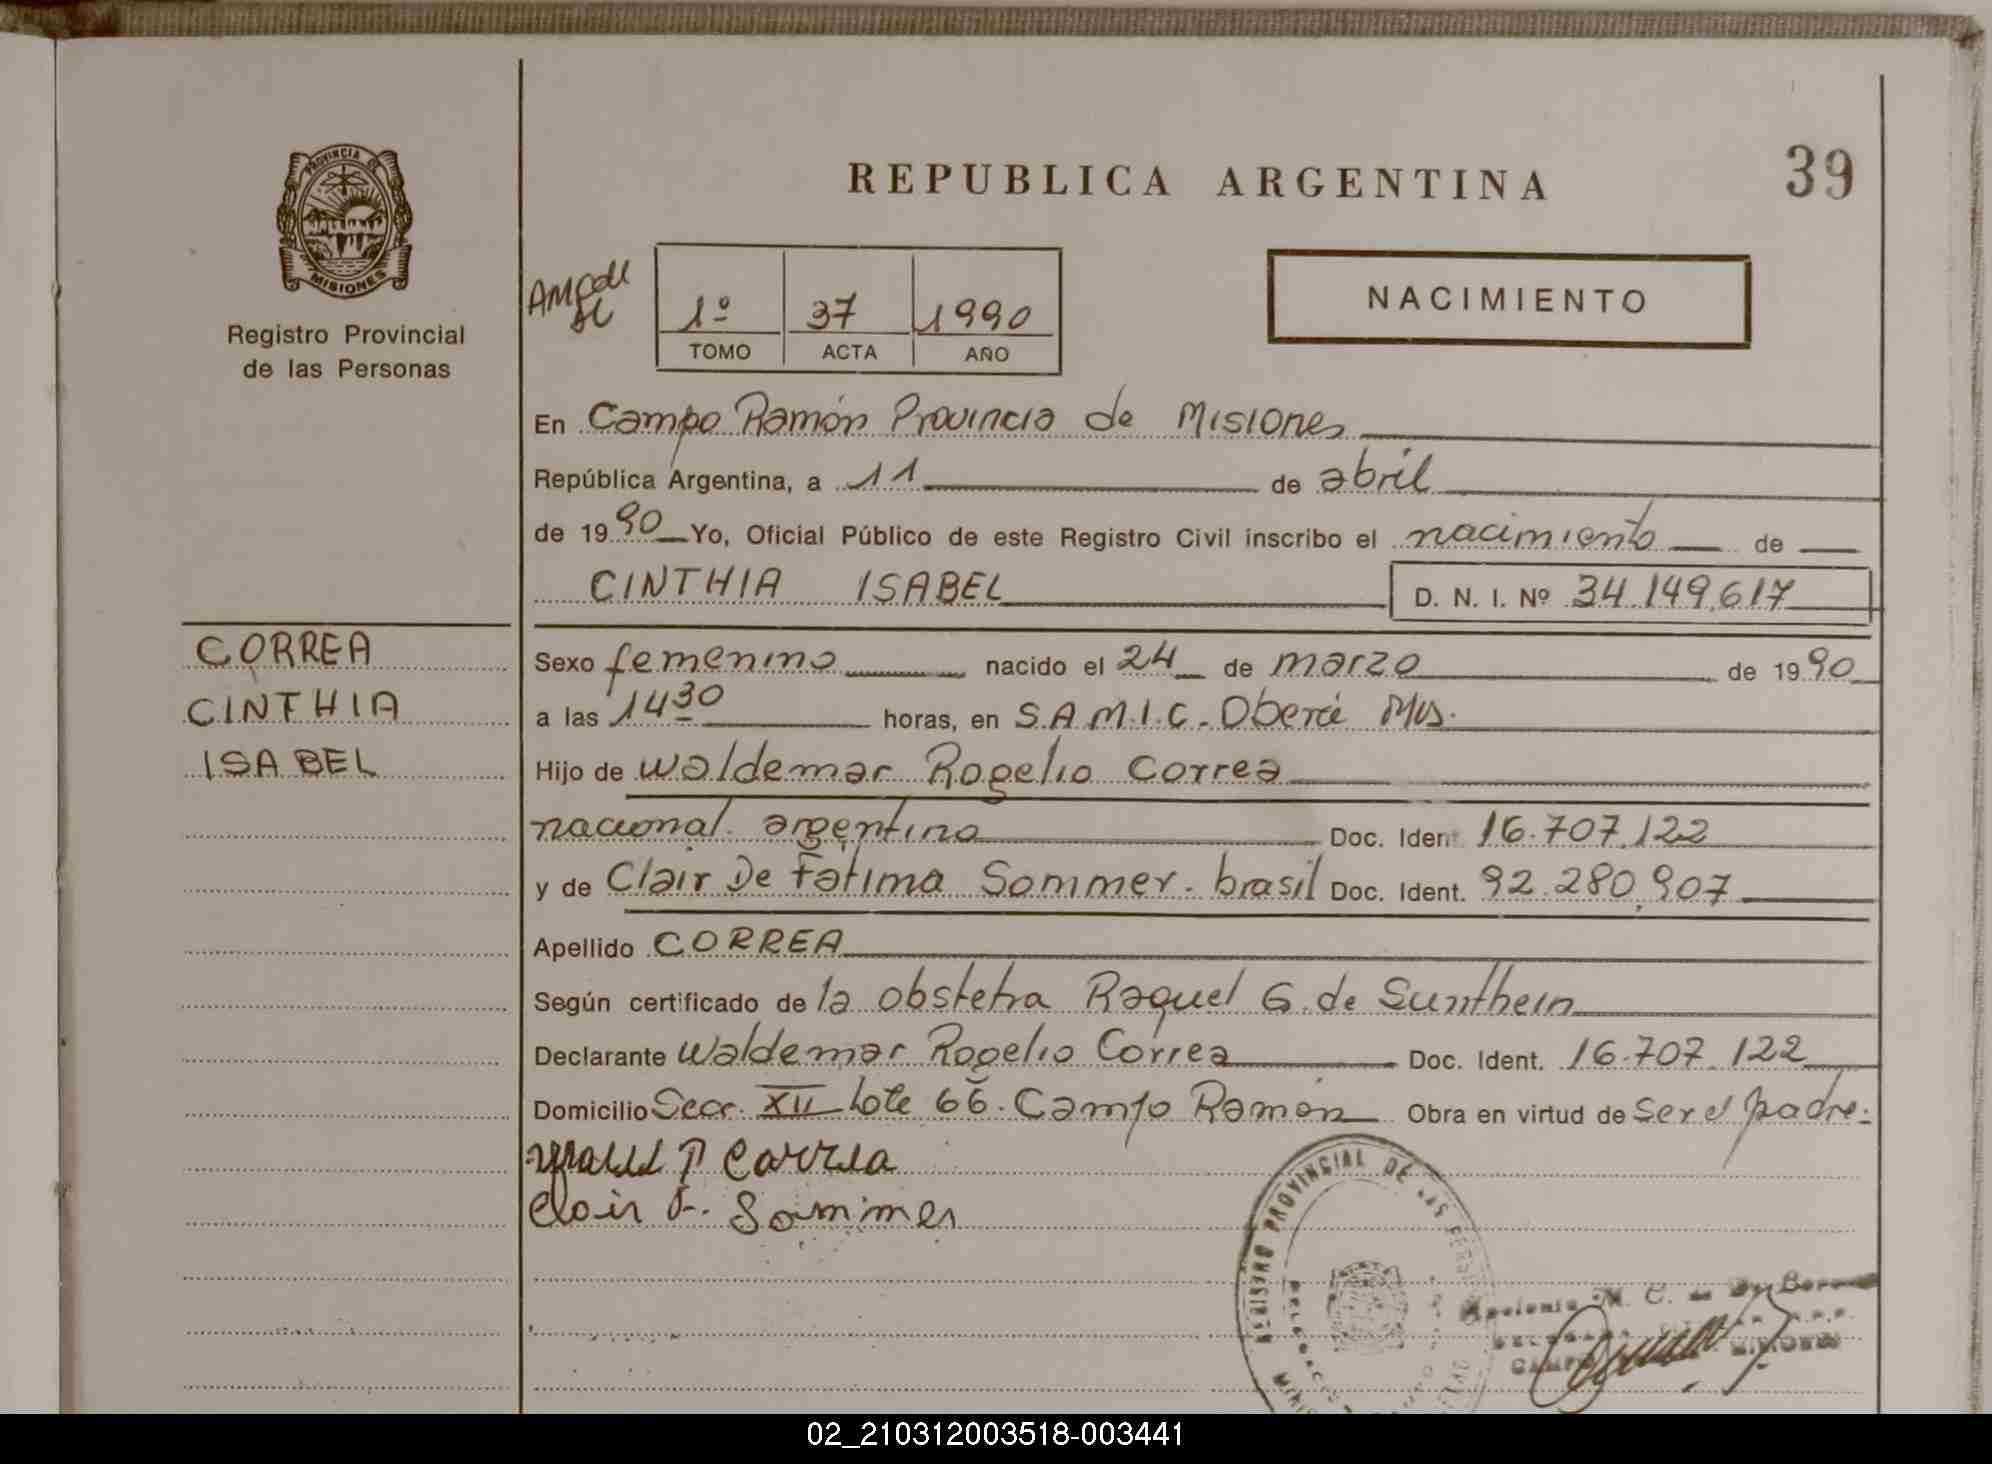 PROVINCIA DE
MISIONES
Registro Provincial
de las Personas
REPUBLICA ARGENTINA
39
1º 37 1990
TOMO ACTA AÑO
NACIMIENTO
En Campo Ramón Provincia de Misiones
República Argentina, a 11 de abril
de 1990 Yo, Oficial Público de este Registro Civil inscribo el nacimiento de
CINTHIA ISABEL D. N. I. Nº 34.149.617
CORREA
CINTHIA
ISABEL
Sexo femenino nacido el 24 de marzo de 1990
a las 14 30 horas, en S.A.M.I.C. Oberá Mis.
Hijo de Waldemar Rogelio Correa
nacional. argentina Doc. Ident. 16.707.122
y de Clair De Fátima Sommer. brasil Doc. Ident. 92.280.907
Apellido CORREA
Según certificado de la obstetra Raquel G. de Sunthein
Declarante Waldemar Rogelio Correa Doc. Ident. 16.707.122
Domicilio Secc. XII Lote 66. Campo Ramón Obra en virtud de ser el padre.
Correa
Clair F. Sommer
REGISTRO PROVINCIAL DE LAS
02_210312003518-003441